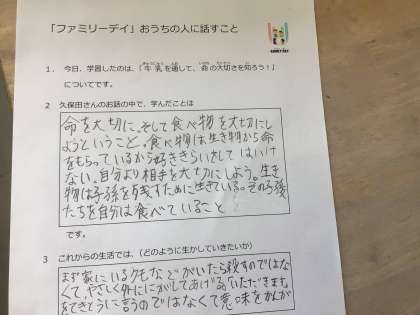 「ファミリーデイ」おうちの人に話すこと
1. 今日、学習したのは、「牛乳を通して、命の大切さを知ろう！」
についてです。
2 久保田さんのお話の中で、学んだことは
命を大切に、そして食べ物を大切にし
ようということ。食べ物は生き物から命
をもらっているから好ききらいをしてはいけ
ない。自分より相手を大切にしよう。生き
物は子孫を残すために生きている。その子孫
たちを自分は食べていること
です。
3 これからの生活では、（どのように生かしていきたいか）
まず家にいるクモなどがいたら殺すのではな
くて、やさしく外ににがしてあげる。「いただきます」
をてきとうに言うのではなくて意味をかんが